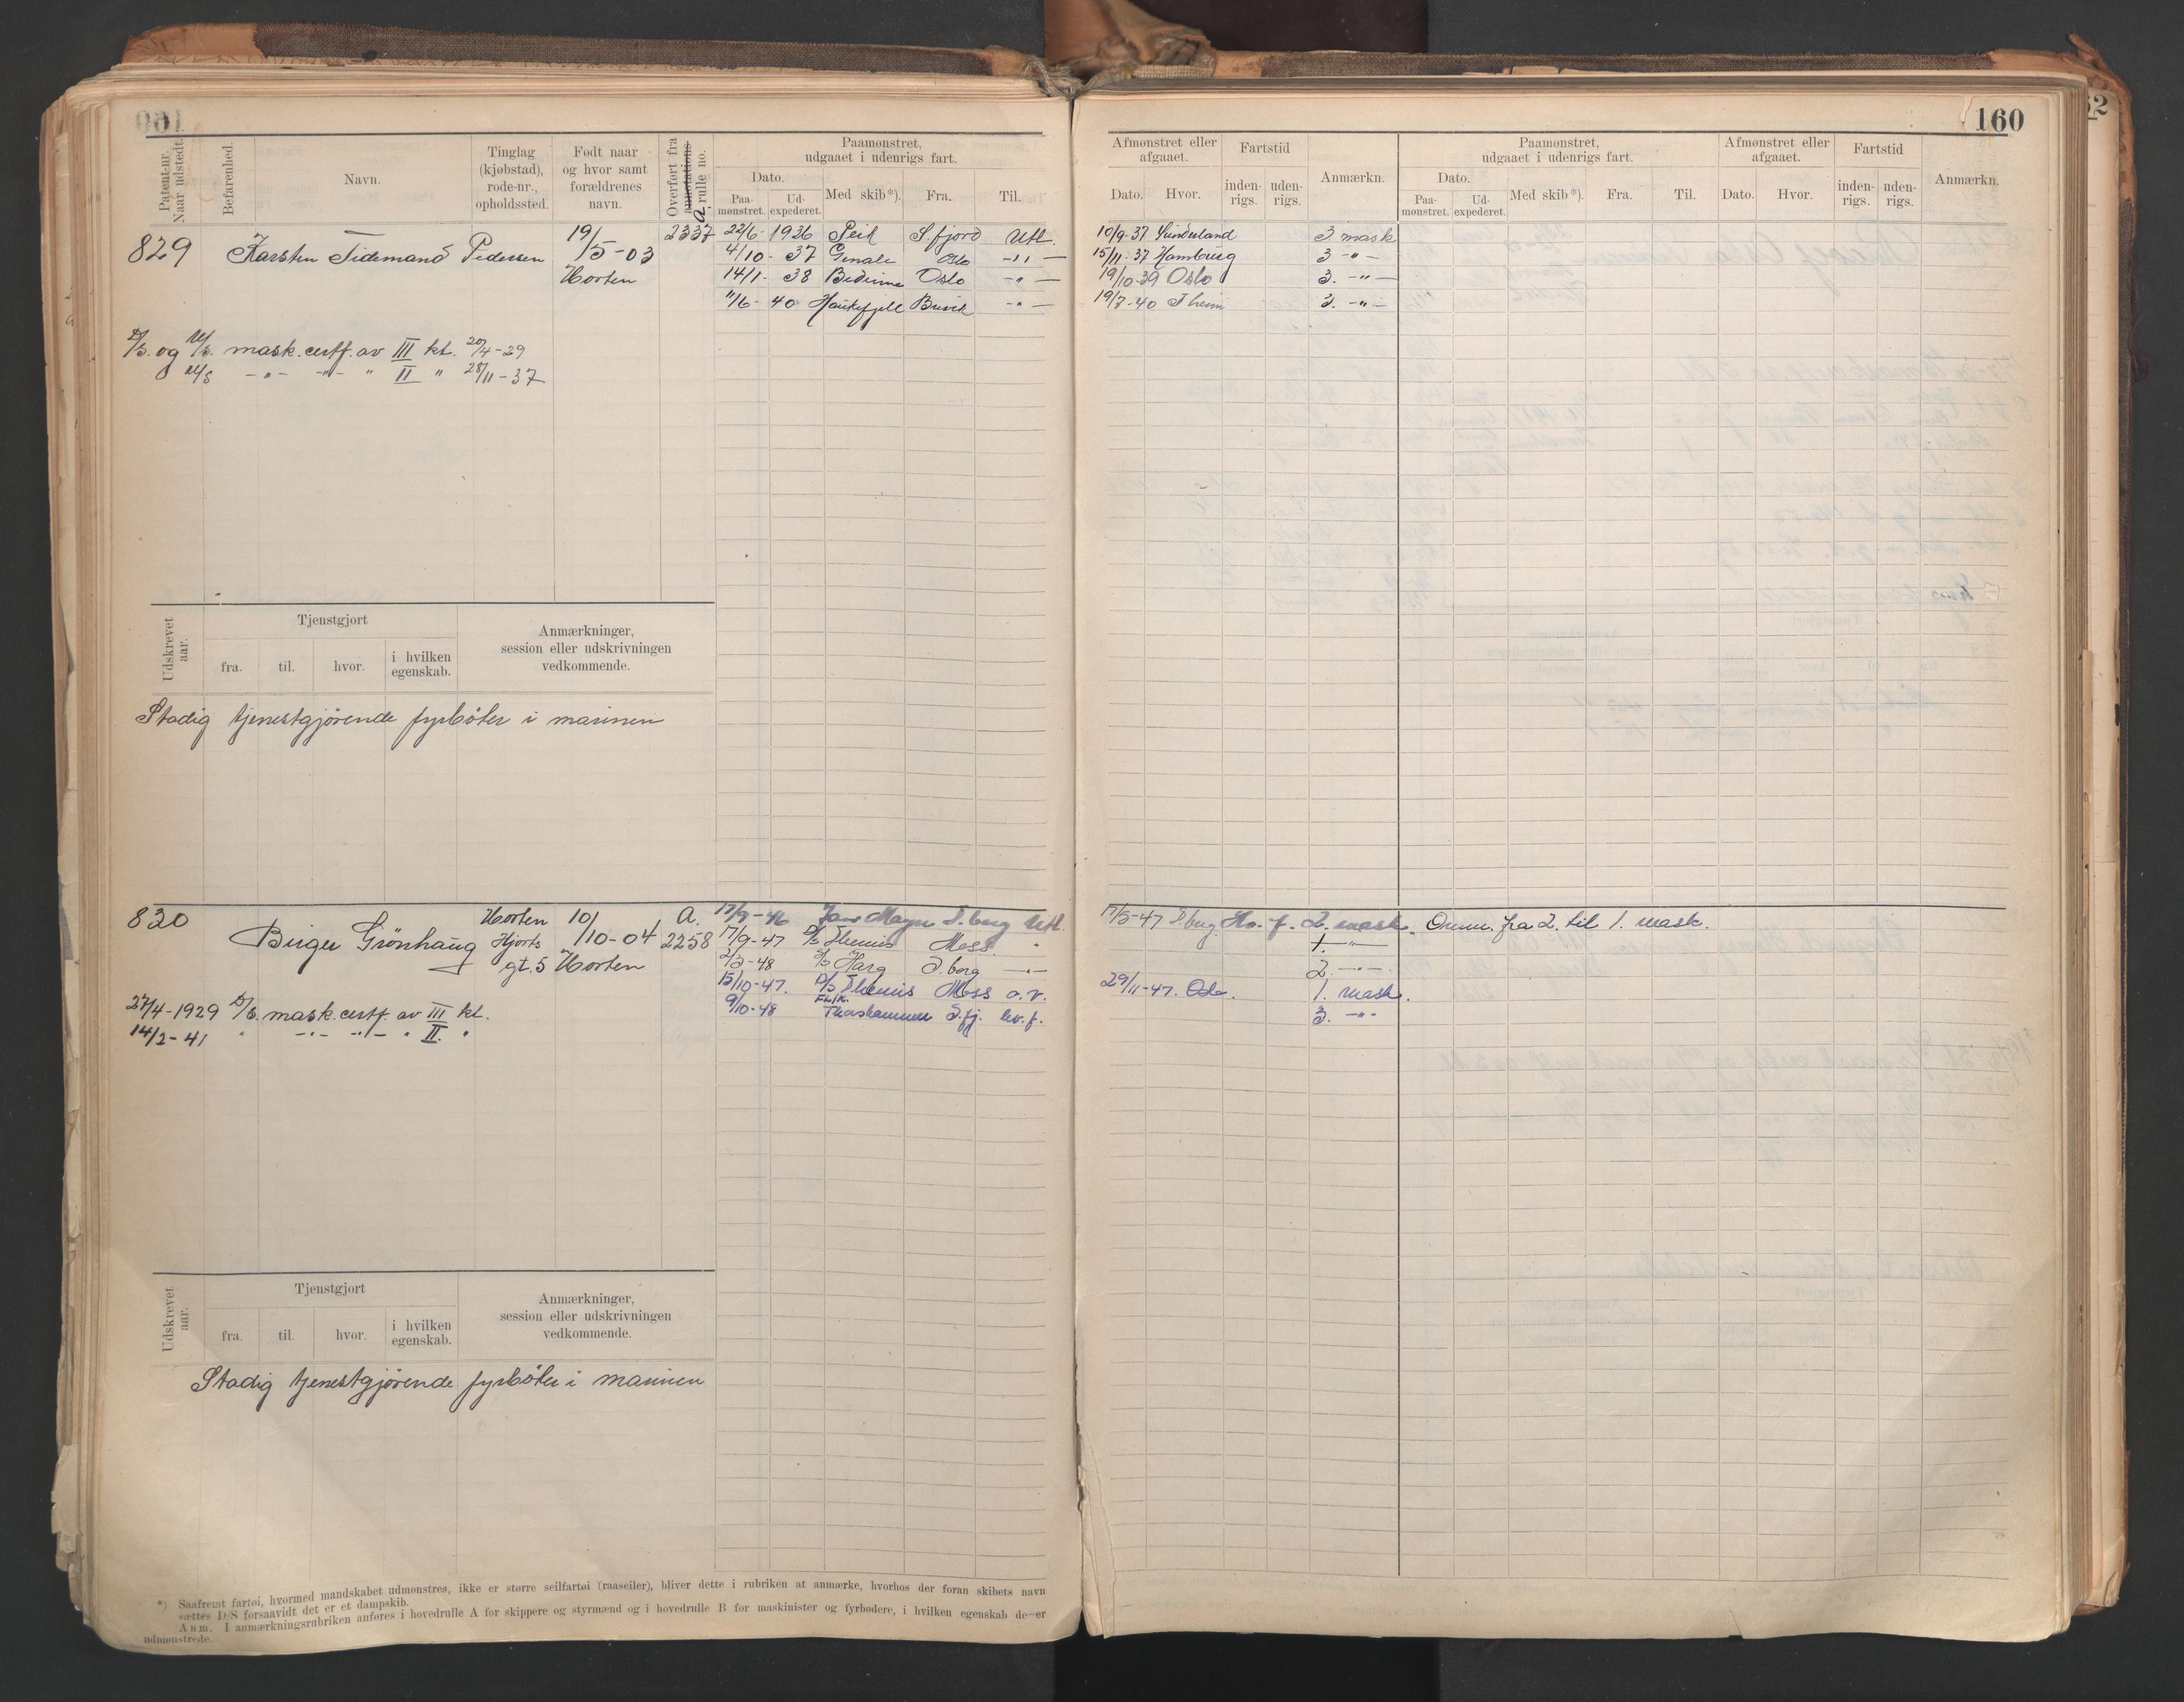 160
Patent-nr. Naar udstedt.
Befarenhed.
Navn.
Tinglag (kjøbstad), rode-nr., opholdssted.
Født naar og hvor samt forældrenes navn.
Overført fra annotations A rulle no.
Paamønstret, udgaaet i udenrigs fart.
Dato.
Paa-mønstret.
Ud-expederet.
Med skib*).
Fra.
Til.
829 Karsten Tidemand Pedersen 19/5-03 Horten 2337
22/6- 1936 Peik S fjord Utl.
4/10- 37 Oslo -"-
14/1- 38 Oslo -"-
11/6- 40 Haukefjell -"-
D/S. og M/S. mask.certf. av III kl. 20/4-29
M/S -"- -"- " II " 28/11-37
Udskrevet aar.
Tjenstgjort
fra. til. hvor. i hvilken egenskab.
Anmærkninger, session eller udskrivningen vedkommende.
Stadig tjenestgjørende fyrbøter i marinen
830 Birger Grönhaug Horten Hjorts gt. 5 10/10-04 Horten A. 2258
17/9-46 Jan Mayn T.berg Utl.
17/9-47 D/S Themis Moss "
2/3-48 D/S Harg S.borg -"-
15/10-47. D/S Themis Moss a.v.
9/10-48 Fl/K. Thorshammer S.fj. hv.f.
27/4-1929 D/S. mask.certf. av III kl.
14/2-41 " -"- -"- " II. "
Udskrevet aar.
Tjenstgjort
fra. til. hvor. i hvilken egenskab.
Anmærkninger, session eller udskrivningen vedkommende.
Stadig tjenestgjørende fyrbøter i marinen
*) Saafremt fartøi, hvormed mandskabet udmønstres, ikke er større seilfartøi (raaseiler), bliver dette i rubriken at anmærke, hvorhos der foran skibets navn
sættes D/S forsaavidt det er et dampskib.
Anm. I anmærkningsrubriken anføres i hovedrulle A for skippere og styrmænd og i hovedrulle B for maskinister og fyrbødere, i hvilken egenskab de er
udmønstrede.
160
Afmønstret eller afgaaet.
Dato. Hvor.
Fartstid
inden-rigs. uden-rigs.
Anmærkn.
Paamønstret, udgaaet i udenrigs fart.
Dato.
Paa-mønstret. Ud-expederet.
Med skib*). Fra. Til.
Afmønstret eller afgaaet.
Dato. Hvor.
Fartstid
inden-rigs. uden-rigs.
Anmærkn.
10/9-37 Sunderland 3. mask
15/11-37 Hamburg 3 -"-
19/10-39 Oslo 3. -"-
19/7-40 Theim 3. -"-
17/5-47 T.berg. 2. mask. Omm. fra 2. til 1. mask.
1. -"-
2. -"-
29/11-47. Oslo. 1. mask.
3. -"-
52